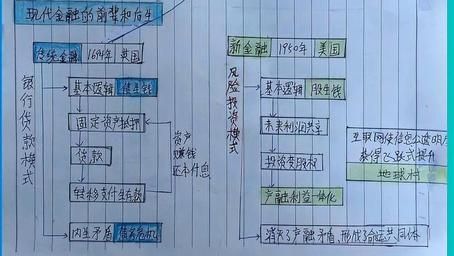 现代金融的前辈和后生
传统金融 1694年 英国
银行贷款模式
基本逻辑 债生钱
固定资产抵押
贷款
转移支付生存款
内生矛盾 债务危机
资产
赚钱
还本付息
新金融 1950年 美国
风险投资模式
基本逻辑 股生钱
未来利润共享
投资变股权
产融利益一体化
消灭了产融矛盾、形成了命运共同体
互联网使信息公道明度
获得飞跃式提升
地球村